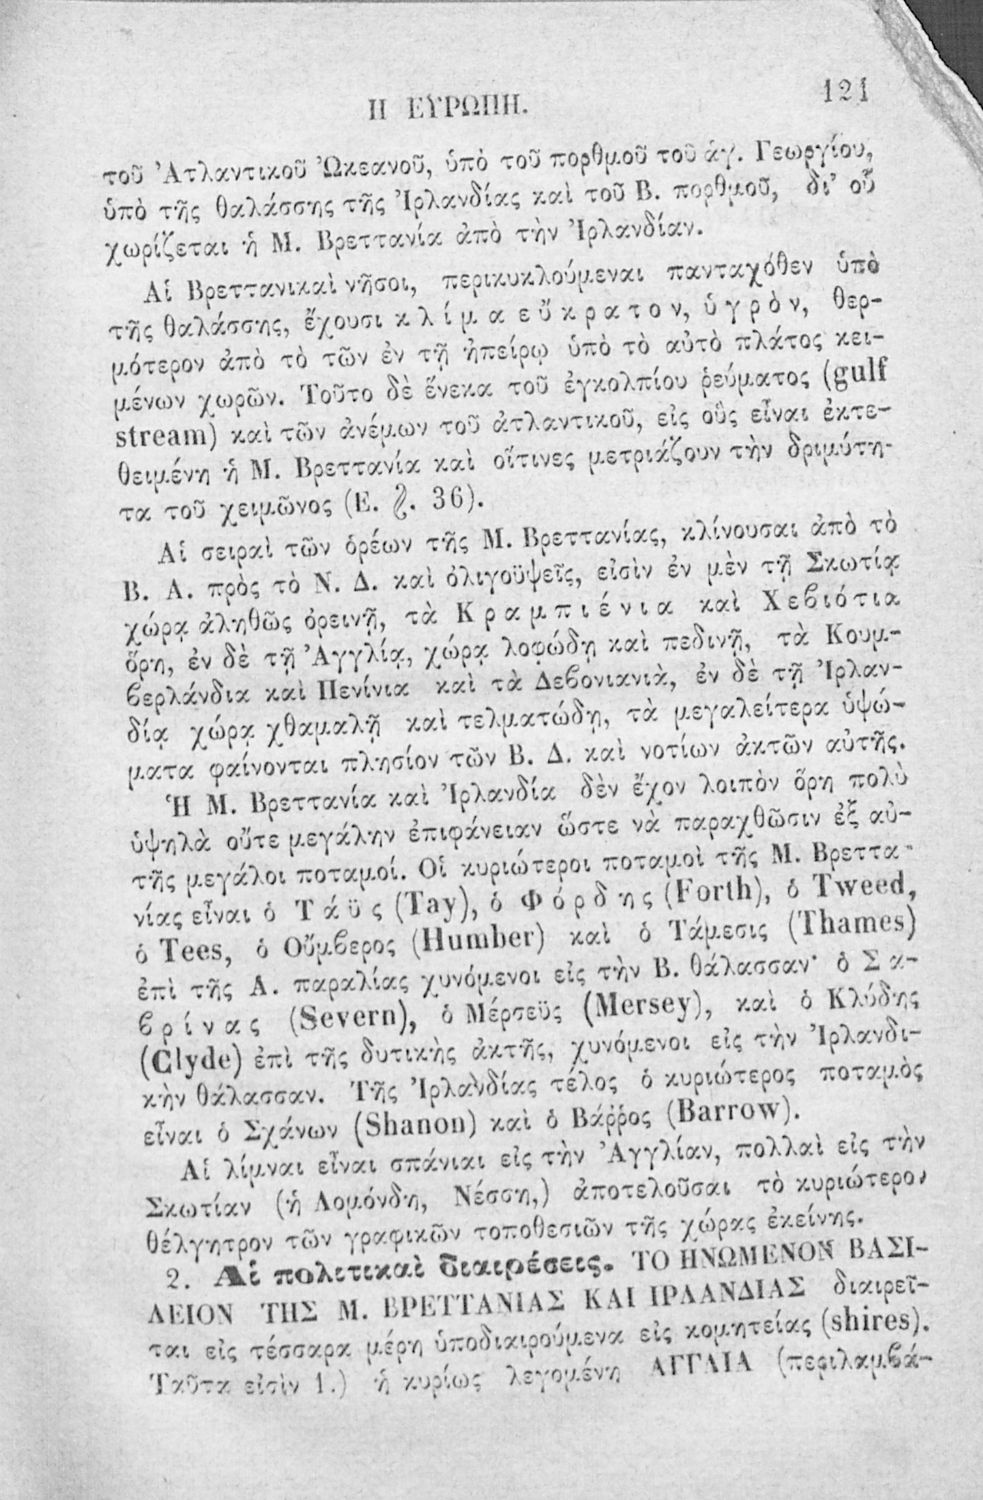 Η ΕΥΡΩΠΗ.
121
τοῦ Ἀτλαντικοῦ Ὠκεανοῦ, ὑπὸ τοῦ πορθμοῦ τοῦ ἁγ. Γεωργίου,
ὑπὸ τῆς θαλάσσης τῆς Ἰρλανδίας καὶ τοῦ Β. πορθμοῦ, δι’ οὗ
χωρίζεται ἡ Μ. Βρεττανία ἀπὸ τὴν Ἰρλανδίαν.
Αἱ Βρεττανικαὶ νῆσοι, περικυκλούμεναι πανταχόθεν ὑπὸ
τῆς θαλάσσης, ἔχουσι κ λ ί μ α ε ὔ κ ρ α τ ο ν, ὑ γ ρ ὸ ν, θερ-
μότερον ἀπὸ τὸ τῶν ἐν τῇ ἠπείρῳ ὑπὸ τὸ αὐτὸ πλάτος κει-
μένων χωρῶν. Τοῦτο δὲ ἕνεκα τοῦ ἐγκολπίου ῥεύματος (gulf
stream) καὶ τῶν ἀνέμων τοῦ ἀτλαντικοῦ, εἰς οὓς εἶναι ἐκτε-
θειμένη ἡ Μ. Βρεττανία καὶ οἵτινες μετριάζουν τὴν δριμύτη-
τα τοῦ χειμῶνος (Ε. §. 36).
Αἱ σειραὶ τῶν ὀρέων τῆς Μ. Βρεττανίας, κλίνουσαι ἀπὸ τὸ
Β. Α. πρὸς τὸ Ν. Δ. καὶ ὀλιγοϋψεῖς, εἰσὶν ἐν μὲν τῇ Σκωτίᾳ
χώρᾳ ἀληθῶς ὀρεινῇ, τὰ Κ ρ α μ π ι έ ν ι α καὶ Χεβιότια
ὄρη, ἐν δὲ τῇ Ἀγγλίᾳ, χώρᾳ λοφώδη καὶ πεδινῇ, τὰ Κουμ-
βερλάνδια καὶ Πενίνια καὶ τὰ Δεβονιανιὰ, ἐν δὲ τῇ Ἰρλαν-
δίᾳ χώρᾳ χθαμαλῇ καὶ τελματώδη, τὰ μεγαλείτερα ὑψώ-
ματα φαίνονται πλησίον τῶν Β. Δ. καὶ νοτίων ἀκτῶν αὐτῆς.
Ἡ Μ. Βρεττανία καὶ Ἰρλανδία δὲν ἔχον λοιπὸν ὄρη πολὺ
ὑψηλὰ οὔτε μεγάλην ἐπιφάνειαν ὥστε νὰ παραχθῶσιν ἐξ αὐ-
τῆς μεγάλοι ποταμοί. Οἱ κυριώτεροι ποταμοὶ τῆς Μ. Βρεττα-
νίας εἶναι ὁ Τ ά ϋ ς (Tay), ὁ Φ ό ρ δ η ς (Forth), ὁ Tweed,
ὁ Tees, ὁ Οὔμβερος (Humber) καὶ ὁ Τάμεσις (Thames)
ἐπὶ τῆς Α. παραλίας χυνόμενοι εἰς τὴν Β. θάλασσαν· ὁ Σ α-
β ρ ί ν α ς (Severn), ὁ Μέρσεϋς (Mersey), καὶ ὁ Κλύδης
(Clyde) ἐπὶ τῆς δυτικὴς ἀκτῆς, χυνόμενοι εἰς τὴν Ἰρλανδι-
κὴν θάλασσαν. Τῆς Ἰρλανδίας τέλος ὁ κυριώτερος ποταμὸς
εἶναι ὁ Σχάνων (Shanon) καὶ ὁ Βάῤῥος (Barrow).
Αἱ λίμναι εἶναι σπάνιαι εἰς τὴν Ἀγγλίαν, πολλαὶ εἰς τὴν
Σκωτίαν (ἡ Λομόνδη, Νέσση,) ἀποτελοῦσαι τὸ κυριώτερον
θέλγητρον τῶν γραφικῶν τοποθεσιῶν τῆς χώρας ἐκείνης.
2. Αἱ πολιτικαὶ διαιρέσεις. ΤΟ ΗΝΩΜΕΝΟΝ ΒΑΣΙ-
ΛΕΙΟΝ ΤΗΣ Μ. ΒΡΕΤΤΑΝΙΑΣ ΚΑΙ ΙΡΛΑΝΔΙΑΣ διαιρεῖ-
ται εἰς τέσσαρα μέρη ὑποδιαιρούμενα εἰς κομητείας (shires).
Ταῦτα εἰσὶν 1.) ἡ κυρίως λεγομένη ΑΓΓΛΙΑ (περιλαμβά-